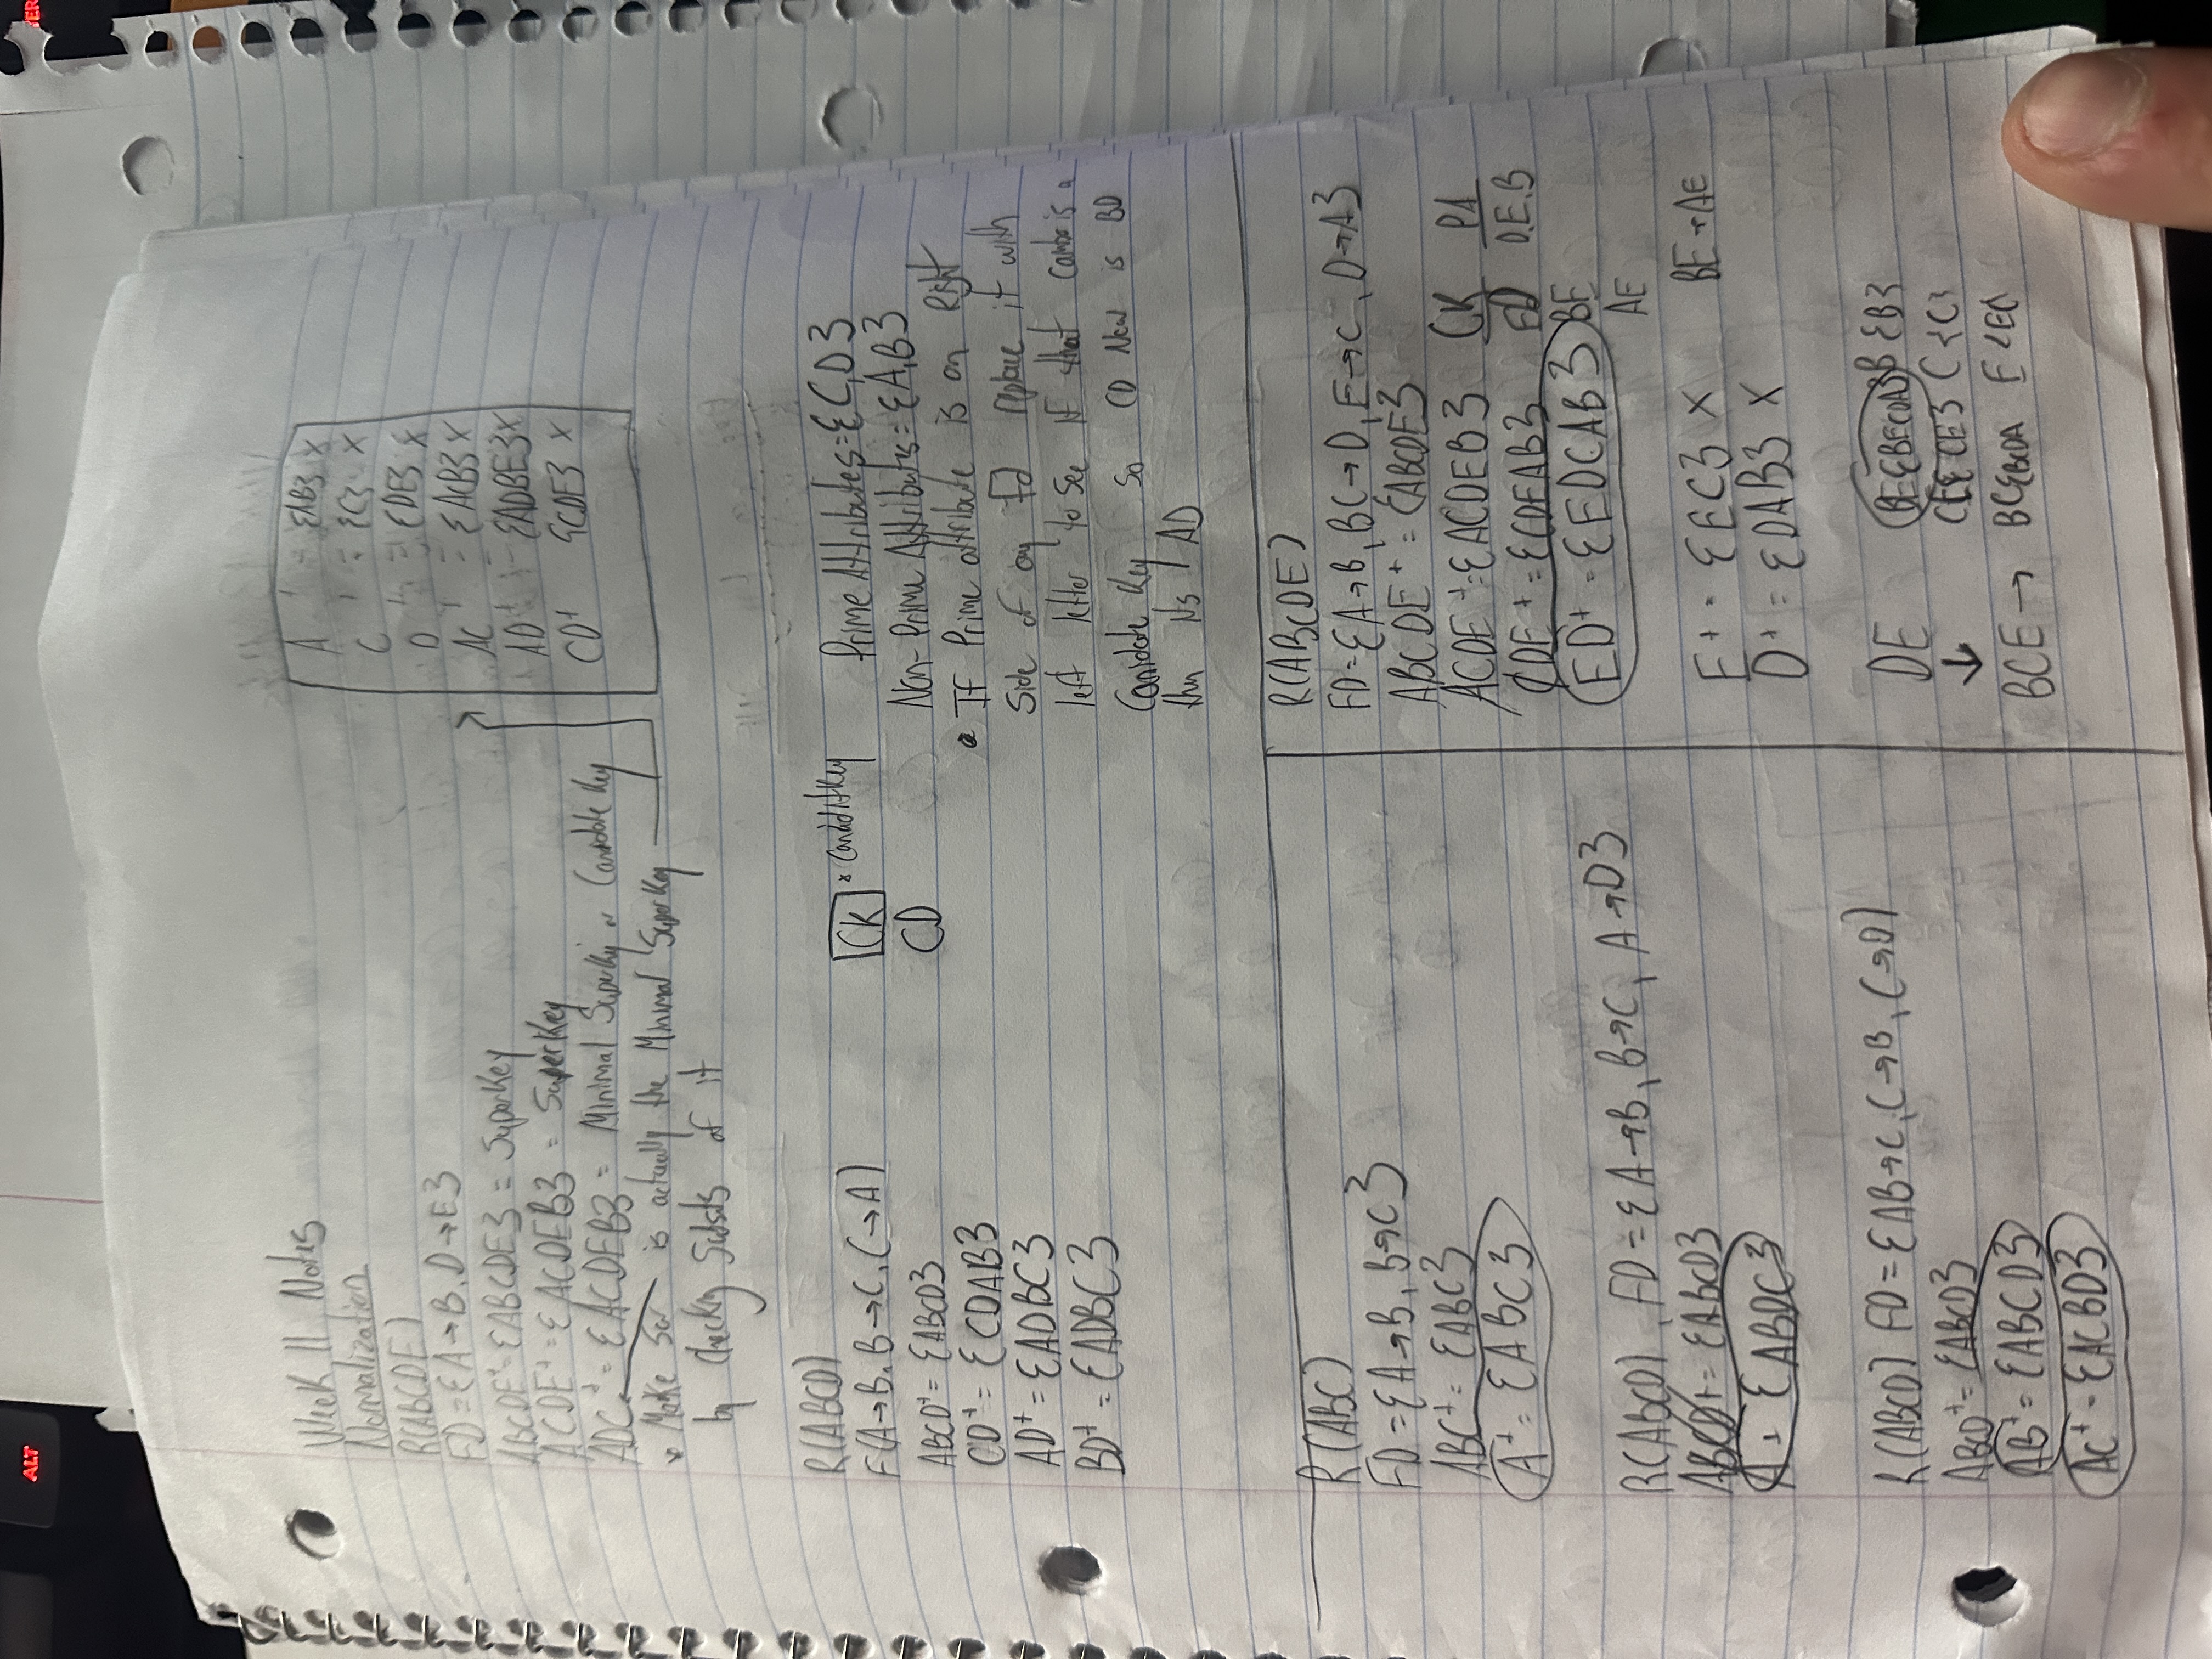 ALT
Week 11 Notes
Normalization
R(ABCDE)
FD = {A→B, D→E}
ABCDE⁺ = {ABCDE} = SuperKey
ACDE⁺ = {ACDEB} = SuperKey
ADC⁺ = {ACDEB} = Minimal SuperKey or Candidate Key
* Make Sur is actually the Minimal SuperKey
by checking Subsets of it
A⁺ = {AB} x
C⁺ = {C} x
D⁺ = {DE} x
AC⁺ = {ACB} x
AD⁺ = {ADBE} x
CD⁺ {CDE} x
R(ABCD)
F(A→B, B→C, C→A)
ABCD⁺ = {ABCD}
CD⁺ = {CDAB}
AD⁺ = {ADBC}
BD⁺ = {ADBC}
CK * CaniditKey
CD
Prime Attributes = {C,D}
Non-Prime Attributes = {A,B}
• If Prime attribute is on Right
Side of any Fd replace it with
left letter to see if that combo is a
Canidate Key So CD Now is BD
then AD
R(ABC)
FD = {A→B, B→C}
ABC⁺ = {ABC}
A⁺ = {ABC}
R(ABCD), FD = {A→B, B→C, A→D}
ABCD⁺ = {ABCD}
A⁺ {ABDC}
R(ABCD) FD = {AB→C, C→B, C→D}
ABCD⁺ = {ABCD}
AB⁺ = {ABCD}
AC⁺ = {ACBD}
R(ABCDE)
FD = {A→B, BC→D, E→C, D→A}
ABCDE⁺ = {ABCDE}
ACDE⁺ = {ACDEB} CK PA
CDE⁺ = {CDEAB} ED D.E.B
ED⁺ = {EDCAB} BE
AE
E⁺ = {EC} X BE → AE
D⁺ = {DAB} X
DE BE{BECDA} B {B}
↓ CE{CE} C {C}
BCE → BC{BCDA E {EC